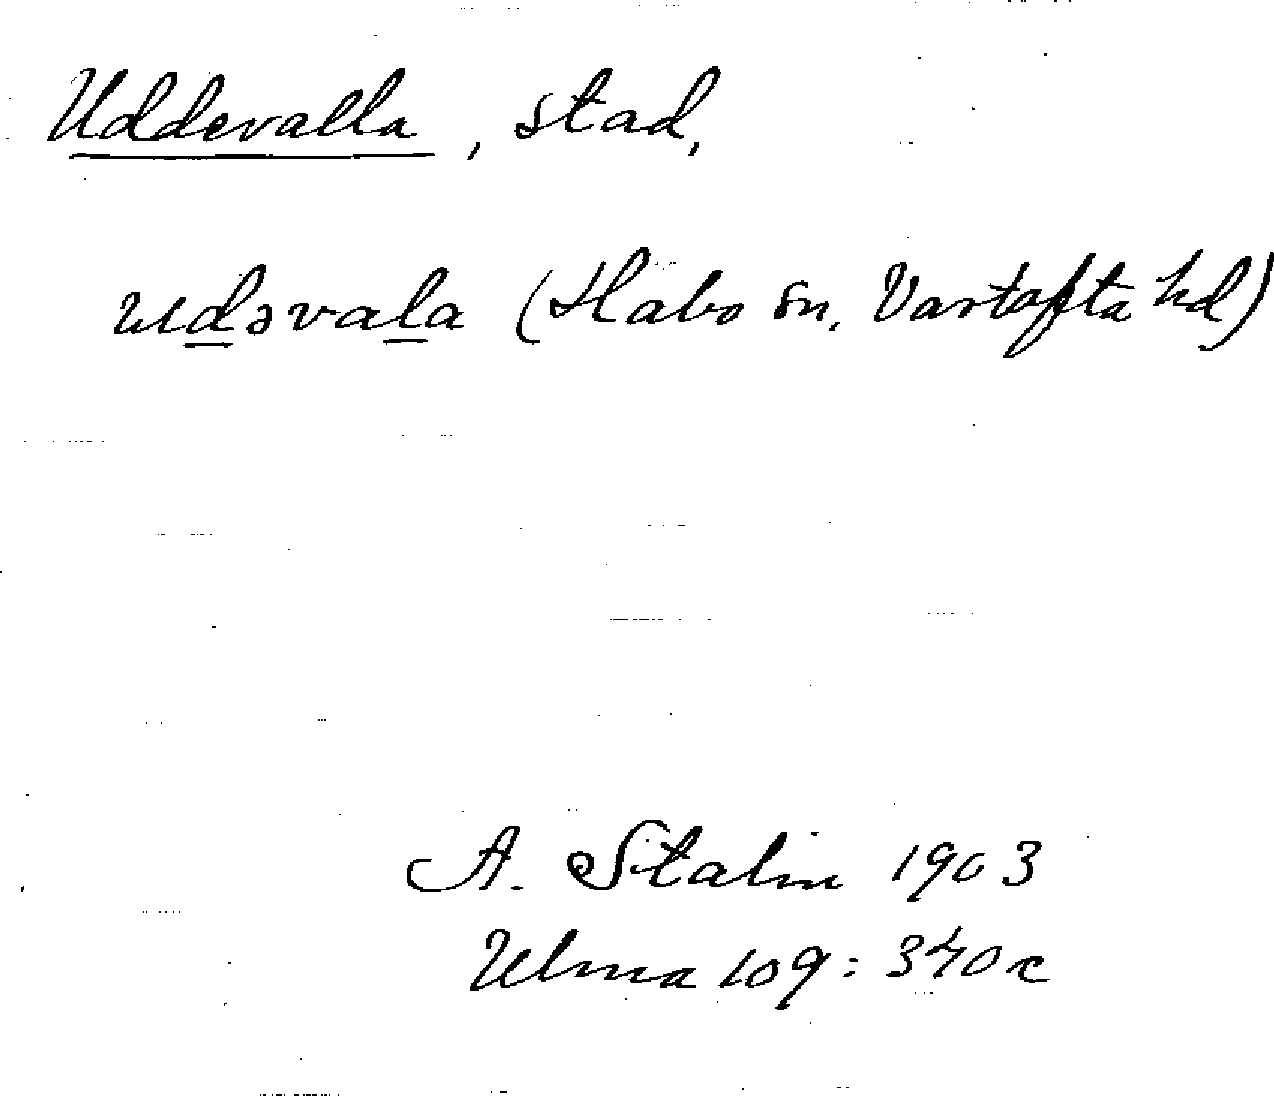 Uddevalla, stad,
udəvala (Habo sn, Vartofta hd)
A. Stalin 1903
Ulma 109: 340 c